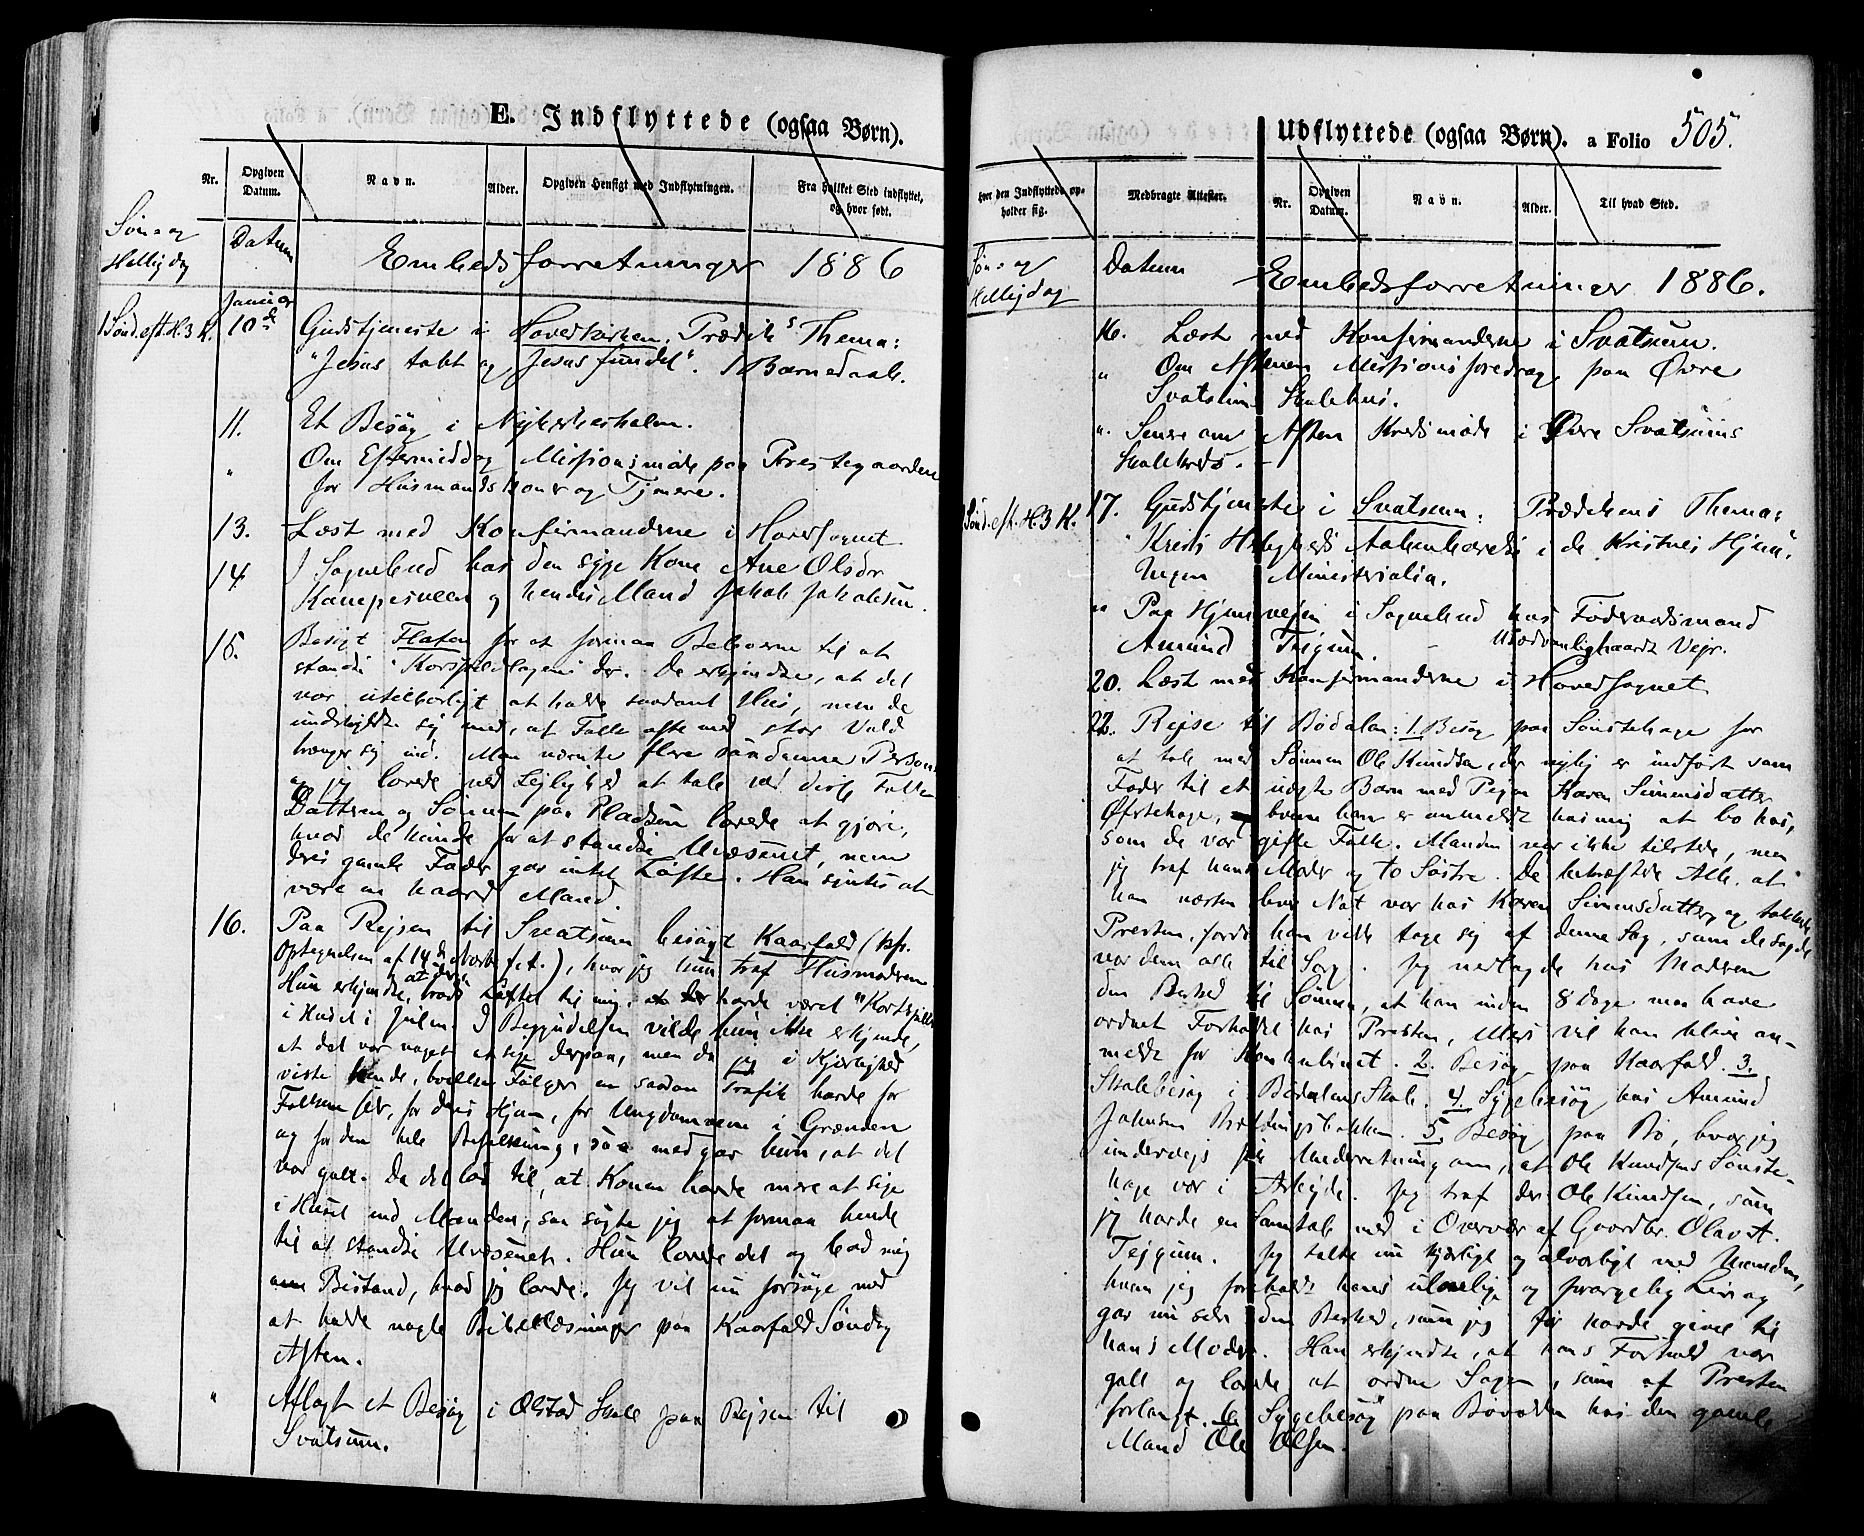 E. Indflyttede (ogsaa Børn).
Nr. Opgiven Datum. Navn. Alder. Opgiven Hensigt med Indflytningen. Fra hvilket Sted indflyttet, og hvor født.
Søn- og Helligdag Datum Embedsforretninger 1886
Januar
1 Sønd. eft. H. 3 K. 10de Gudstjeneste i Hovedkirken. Prædik.s Thema:
"Jesus tabt og Jesus fundet". 1 Barnedaab.
11. Et Besøg i
" Om Eftermiddag Missionsmøde paa Prestegaarden
for Husmandskoner og Tjenere.
13. Læst med Konfirmanderne i Hovedsognet
14. I Sognebud hos den syge Kone Ane Olsdr
Kampesveen og hendes Mand Jakob Jakobsen.
15. Besøgt Flaten for at formaa Beboerne til at
standse Kortspillingen der. De erkjendte, at det
var utilbørligt at holde saadant Hus, men de
undskyldte sig med, at Folk ofte med stor Vold
trænger sig ind. Man nævnte flere saadanne Personer
og jeg lovede ved Lejlighed at tale ved disse Folk.
Datteren og Sønnen paa Pladsen lovede at gjøre,
hvad de kunde for at standse Uvæsenet, men
deres gamle Fader gav intet Løfte. Han syntes at
være en haard Mand.
16. Paa Rejsen til Svatsum besøgt Kaarfald (kfr.
Optegnelsen af 14de), hvor jeg kun traf Husmoderen
Hun erkjendte, at der trods Løftet til mig, havde været "Kortspill"
i Huset i Julen. I Begyndelsen vilde hun ikke erkjende,
at det var noget at sige derpaa, men da jeg i Kjærlighed
viste hende, hvilken Følger en saadan Trafik havde for
Folkene selv, for deres Hjem, for Ungdommen i Grænden
og for den hele Befolkning, saa medgav hun, at det
var galt. Da det lod til, at Konen havde mere at sige
i Huset end Manden, saa søgte jeg at formaa hende
til at standse Uvæsenet. Hun lovede det og bad mig
om Bistand, hvad jeg lovede. Jeg vil nu forsøge med
at holde nogle Bibellæsninger paa Kaarfald Søndag
Aften.
" Aflagt et Besøg i Olstad Skole paa Rejsen til
Svatsum.
Udflyttede (ogsaa Børn). a Folio 505.
hvor den Indflyttede opholder sig. Medbragte Attester. Nr. Opgiven Datum. Navn. Alder. Til hvad Sted.
Søn- og Helligdag Datum Embedsforretninger 1886.
16. Læst med Konfirmanderne i Svatsum.
" Om Aftenen Missionsforedrag paa Øvre
Svatsum Skolehus.
" Senere om Aften Kredsmøde i Øvre Svatsums
Skolekreds.
Sønd. eft. H. 3 K. 17. Gudstjeneste i Svatsum: Prædikens Thema:
"Kristi Herligheds Aabenbarelse i de Kristnes Hjem".
Ingen Ministerialia.
" Paa Hjemvejen i Sognebud hos Føderaadsmand
Amund Tejgum. Usædvanlighaardt Vejr.
20. Læst med Konfirmanderne i Hovedsognet
22. Rejse til Bødalen: 1. Besøg paa Sønstehage for
at tale med Sønnen Ole Knudsen, der nylig er indført som
Fader til et uægte Barn med Pigen Karen Simensdatter
Øfstehage, hvem han er anmeldt hos mig at bo hos,
som de var gifte Folk. Manden var ikke tilstede, men
jeg traf hans Moder og to Søstre. De bekræftede Alle, at
han næsten hver Nat var hos Karen Simensdatter, og takkede
Presten, fordi han vilde tage sig af denne Sag, som de sagde
var dem alle til Sorg. Jeg nedlagde hos Moderen
den Besked til Sønnen, at han inden 8 dage maa have
ordnet Forholdet hos Presten, ellers vil han blive an-
meldt for Konkubinat. 2. Besøg paa Kaarfald. 3.
Skolebesøg i Bødalens Skole. 4. Sygebesøg hos Amund
Johnsen. 5. Besøg paa Bø, hvor jeg
undervejs fik Underretning om, at Ole Knudsens Sønste-
hage var i Arbejde. Jeg traf der Ole Knudsen, som
jeg havde en Samtale med i Overvær af Gaardbr. Olav A.
Tejgum. Jeg talte nu kjærligt og alvorligt med Manden,
hvem jeg foreholdt hans usædelige og forargelig Liv og
gav nu selv den Besked, som jeg før havde givet til
hans Moder. Han erkjendte, at hans Forhold var
galt og lovede at ordne Sagen, som af Presten
forlangt. 6 Sygebesøg paa hos den gamle
Mand Ole Olsen.